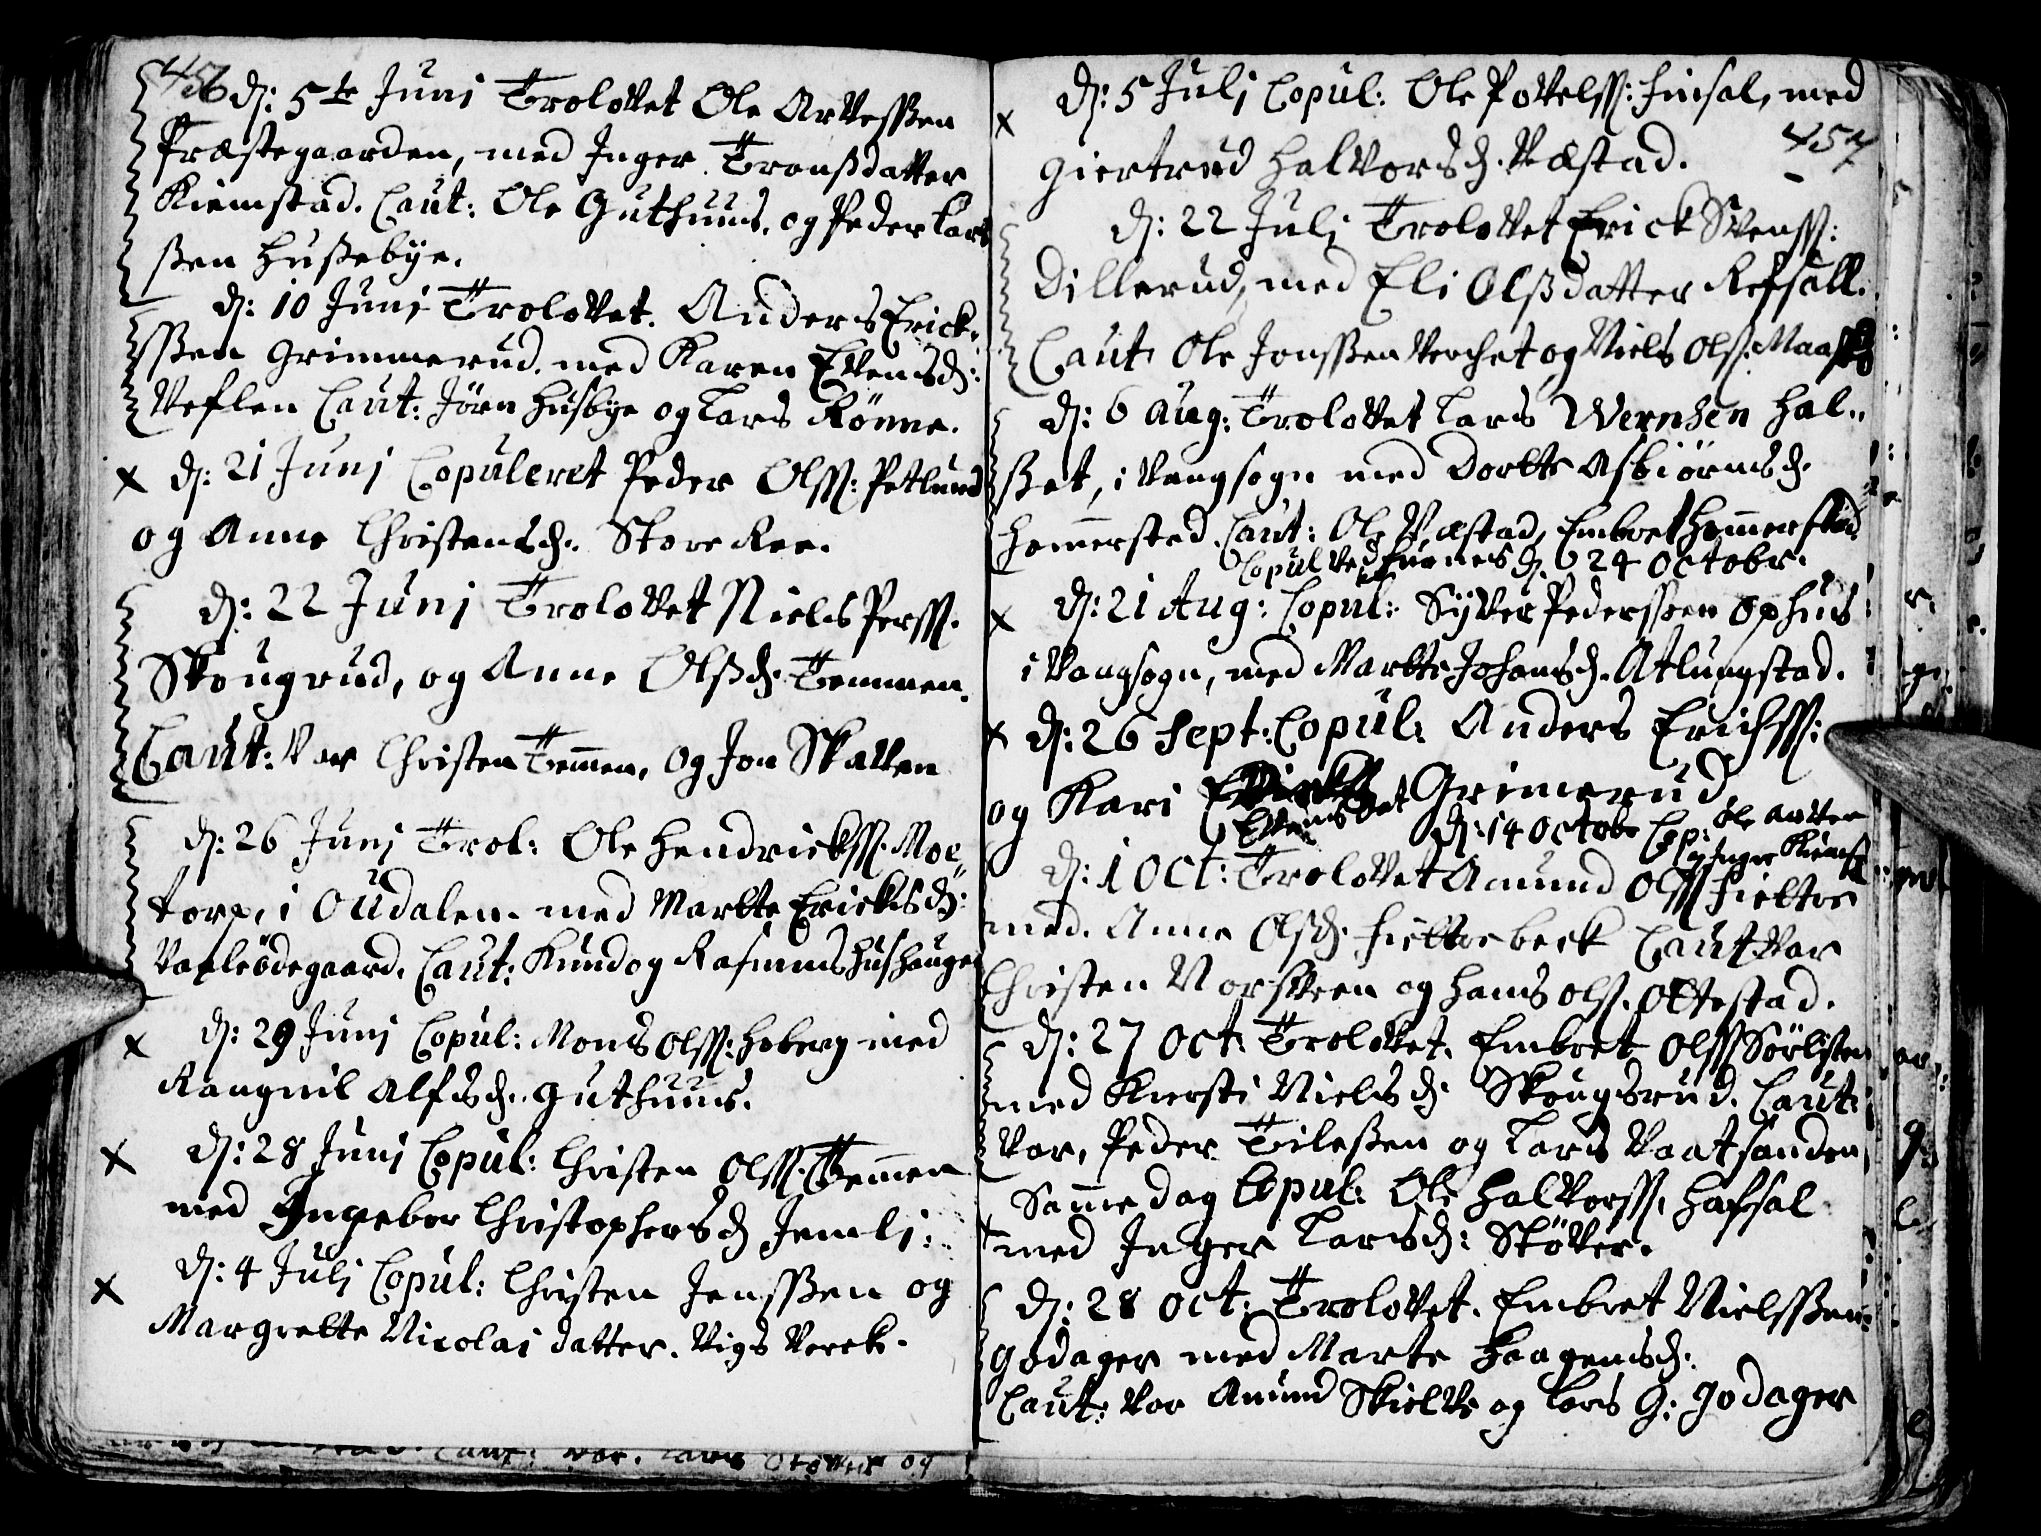 456
d: 5te Junj Trolovet Ole Arvessßen
Præstegaarden, med Inger Tronßdatter
Kiemstad. Caut: Ole Guthuus, og Peder Lars
ßen Hußebye.
d: 10 Junj Trolovet. Anders Erick-
ßen Grimmerud med Karen Evensd:
Veflen Caut: Jörn Husbye og Lars Rönne.
x d: 21 Junj Copuleret Peder Olss: Petlund
og Anne Christensd. Store Ree.
d: 22 Junj Trolovet Niels Perss.
Skougrud, og Anne Olßd. Temmen.
Caut: Var Christen Temmen, og Jon Skatten
d: 26 Junj Trol: Ole Hendrickss. Moe
torp, i Oudalen med Marte Ericksd:
Valeödegaard. Caut: Knud og Rasmus Hushauge
x d: 29 Junj Copul: Mons Olss: Hoberg med
Rangnil Alfsd. Guthuus.
x d: 28 Junj Copul: Christen Olss. Temmen
med Ingebor Christophersd Jemli:
x d: 4 Julj Copul: Christen Jensßen og
Margrette Nicolai datter. Vigs Verck.
x d: 5 Julj Copul: Ole Povelss: Finsal, med
457
Giertrud Halvorsd. Væstad.
d: 22 Julj Trolovet Erick Svenss:
Dillerud, med Eli Olßdatter Refsall.
Caut: Ole Jonsßen Verchet og Niels Ols:
d: 6 Aug: Trolovet Lars Wernsen Hal-
ßet, i Vangsogn med Dorte Asbiörnsd.
Hommerstad. Caut: Ole Væstad, Embret Hommerstad
Copul ved Furnes d. 24 Octobr.
x d: 21 Aug: Copul: Syver Pedersßen Ophus
i Vangsogn, med Marte Johansd. Atlungstad.
x d: 26 Sept: Copul: Anders Erichss:
og Kari Evensdat Grimerud
d: 14 Octobr Cop: Ole Arvesen
og Inger Kiemst
d: 1 Oct: Trolovet Amund Olss Fieltoe
med. Anne Olsd. Fieltoebeck Caut Var
Christen Norsveen og Hans Ols. Ottestad.
d: 27 Oct: Trolovet. Embret Olss Sörlisten
med Kiersti Nielsd: Skougsrud. Caut:
Var, Peder Tileßen og Lars Vaatsanden
Samme dag Copul: Ole Halvorss. Hafsal
x med Inger Larsd: Stöver.
d: 28 Oct: Trolovet. Embret Nielsßen
Godager med Marte Haagensd:
Caut: Var Amund Skielve og Lars G: Godager